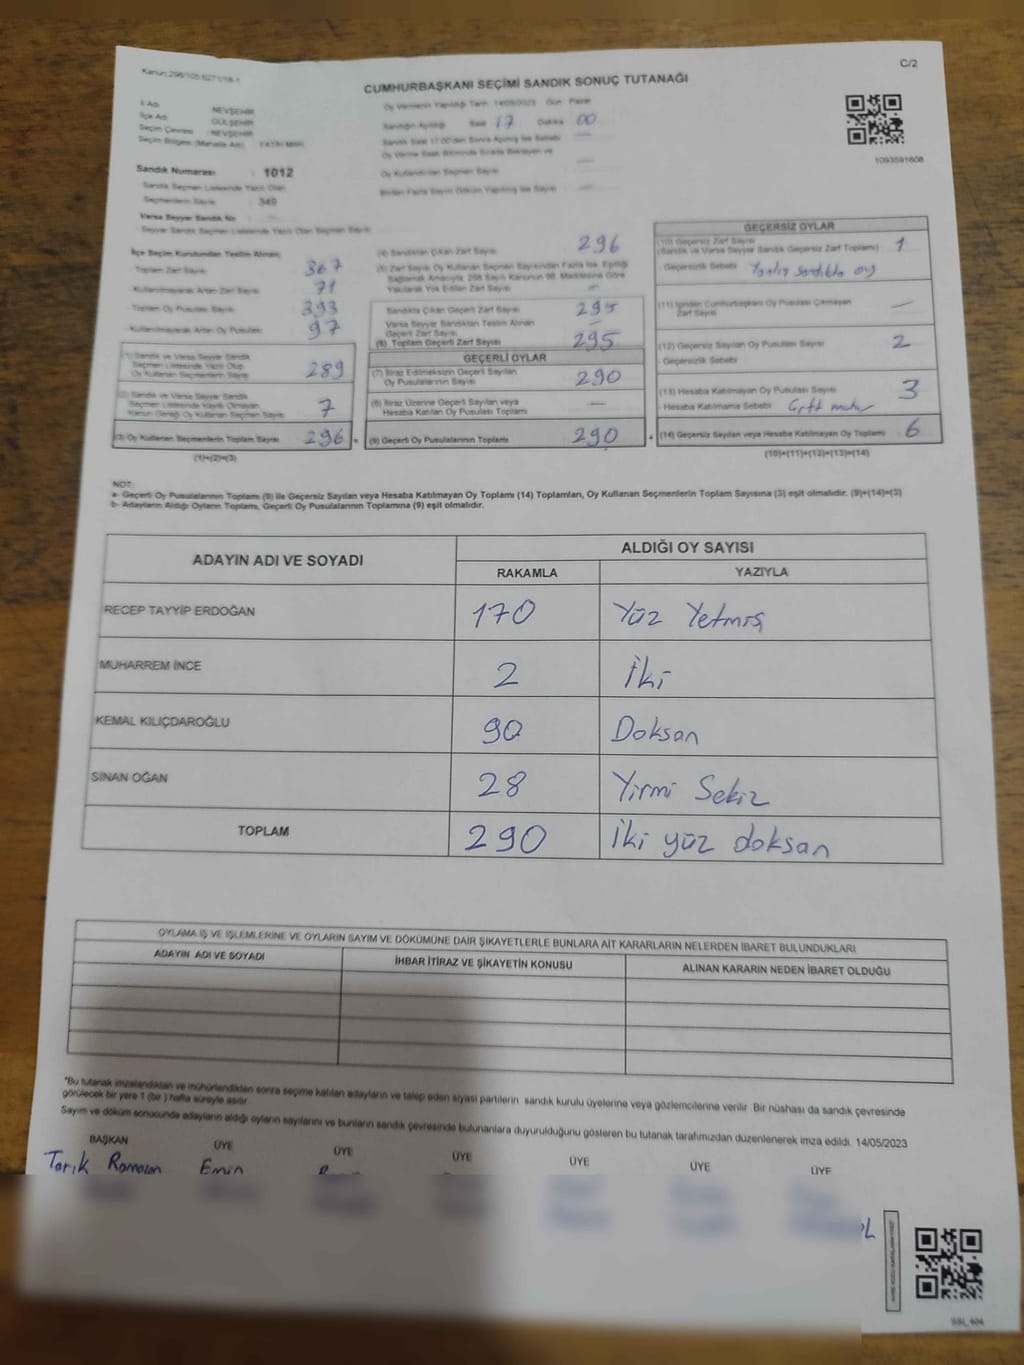 Kanun:298/105,6271/18-1
C/2
CUMHURBAŞKANI SEÇİMİ SANDIK SONUÇ TUTANAĞI
İli Adı NEVŞEHİR
İlçe Adı GÜLŞEHİR
Seçim Çevresi NEVŞEHİR
Seçim Bölgesi (Mahalle Adı)
Oy Vermenin Yapıldığı Tarih 14/05/2023 Gün Pazar
Sandığın Açıldığı Saat 17 Dakika 00
1093591608
Sandık Numarası : 1012
Sandık Seçmen Listesinde Yazılı Olan
Seçmenlerin Sayısı : 349
Varsa Seyyar Sandık No
Seyyar Sandık Seçmen Listesinde Yazılı Olan Seçmen Sayısı
Oy Kullandırılan Seçmen Sayısı —
İlçe Seçim Kurulundan Teslim Alınan;
Toplam Zarf Sayısı 367
Kullanılmayarak Artan Zarf Sayısı 71
Toplam Oy Pusulası 393
Kullanılmayarak Artan Oy Pusulası 97
(1) Sandık ve Varsa Seyyar Sandık
Seçmen Listesinde Yazılı Olup
Oy Kullanan Seçmenlerin Sayısı 289
(2) Sandık ve Varsa Seyyar Sandık
Seçmen Listesinde Kayıtlı Olmayan
Kanun Gereği Oy Kullanan Seçmen Sayısı 7
(3) Oy Kullanan Seçmenlerin Toplam Sayısı 296 =
(1)+(2)=(3)
(4) Sandıktan Çıkan Zarf Sayısı 296
(5) Zarf Sayısı Oy Kullanan Seçmen Sayısından Fazla İse, Eşitliği
Sağlamak Amacıyla 298 Sayılı Kanunun 98. Maddesine Göre
Yakılarak Yok Edilen Zarf Sayısı —
Sandıkta Çıkan Geçerli Zarf Sayısı 295
Varsa Seyyar Sandıktan Teslim Alınan
Geçerli Zarf Sayısı —
(6) Toplam Geçerli Zarf Sayısı 295
GEÇERLİ OYLAR
(7) İtiraz Edilmeksizin Geçerli Sayılan
Oy Pusulalarının Sayısı 290
(8) İtiraz Üzerine Geçerli Sayılan veya
Hesaba Katılan Oy Pusulası Toplamı —
(9) Geçerli Oy Pusulalarının Toplamı 290 +
GEÇERSİZ OYLAR
(10) Geçersiz Zarf Sayısı
(Sandık ve Varsa Seyyar Sandık Geçersiz Zarf Toplamı) 1
Geçersizlik Sebebi Yanlış sandıkta oy
(11) İçinden Cumhurbaşkanı Oy Pusulası Çıkmayan
Zarf Sayısı —
(12) Geçersiz Sayılan Oy Pusulası Sayısı 2
Geçersizlik Sebebi
(13) Hesaba Katılmayan Oy Pusulası Sayısı 3
Hesaba Katılmama Sebebi Çift mühür
(14) Geçersiz Sayılan veya Hesaba Katılmayan Oy Toplamı 6
(10)+(11)+(12)+(13)=(14)
NOT:
a- Geçerli Oy Pusulalarının Toplamı (9) ile Geçersiz Sayılan veya Hesaba Katılmayan Oy Toplamı (14) Toplamları, Oy Kullanan Seçmenlerin Toplam Sayısına (3) eşit olmalıdır. (9)+(14)=(3)
b- Adayların Aldığı Oyların Toplamı, Geçerli Oy Pusulalarının Toplamına (9) eşit olmalıdır.
ADAYIN ADI VE SOYADI
ALDIĞI OY SAYISI
RAKAMLA YAZIYLA
RECEP TAYYİP ERDOĞAN 170 Yüz Yetmiş
MUHARREM İNCE 2 İki
KEMAL KILIÇDAROĞLU 90 Doksan
SİNAN OĞAN 28 Yirmi Sekiz
TOPLAM 290 İki yüz doksan
OYLAMA İŞ VE İŞLEMLERİNE VE OYLARIN SAYIM VE DÖKÜMÜNE DAİR ŞİKAYETLERLE BUNLARA AİT KARARLARIN NELERDEN İBARET BULUNDUKLARI
ADAYIN ADI VE SOYADI İHBAR İTİRAZ VE ŞİKAYETİN KONUSU ALINAN KARARIN NEDEN İBARET OLDUĞU
*Bu tutanak imzalandıktan ve mühürlendikten sonra seçime katılan adayların ve talep eden siyasi partilerin sandık kurulu üyelerine veya gözlemcilerine verilir. Bir nüshası da sandık çevresinde
görülecek bir yere 1 (bir) hafta süreyle asılır.
Sayım ve döküm sonucunda adayların aldığı oyların sayılarını ve bunların sandık çevresinde bulunanlara duyurulduğunu gösteren bu tutanak tarafımızdan düzenlenerek imza edildi. 14/05/2023
BAŞKAN ÜYE ÜYE ÜYE ÜYE ÜYE ÜYE
Tarık Ramazan Emin